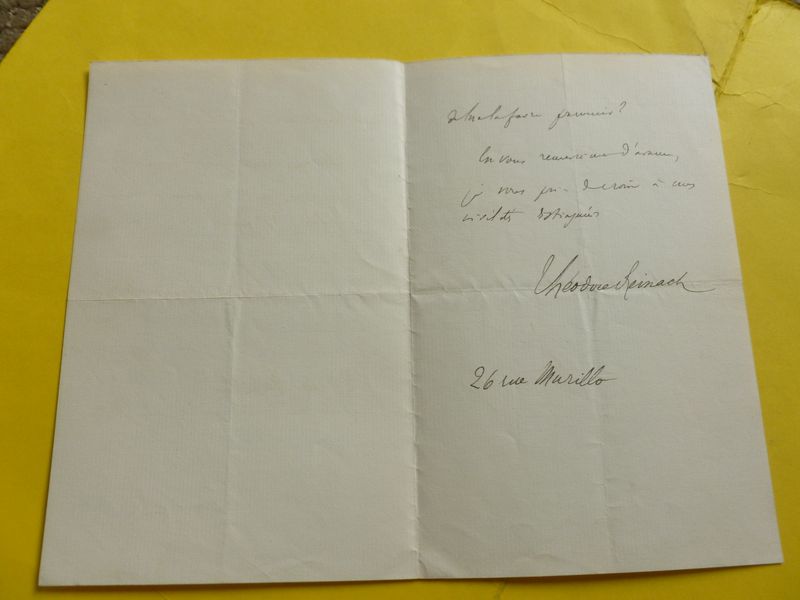 de me la faire parvenir?
En vous remerciant d'avance,
je vous prie de croire à mes
civilités distinguées
Théodore Reinach
26 rue Murillo